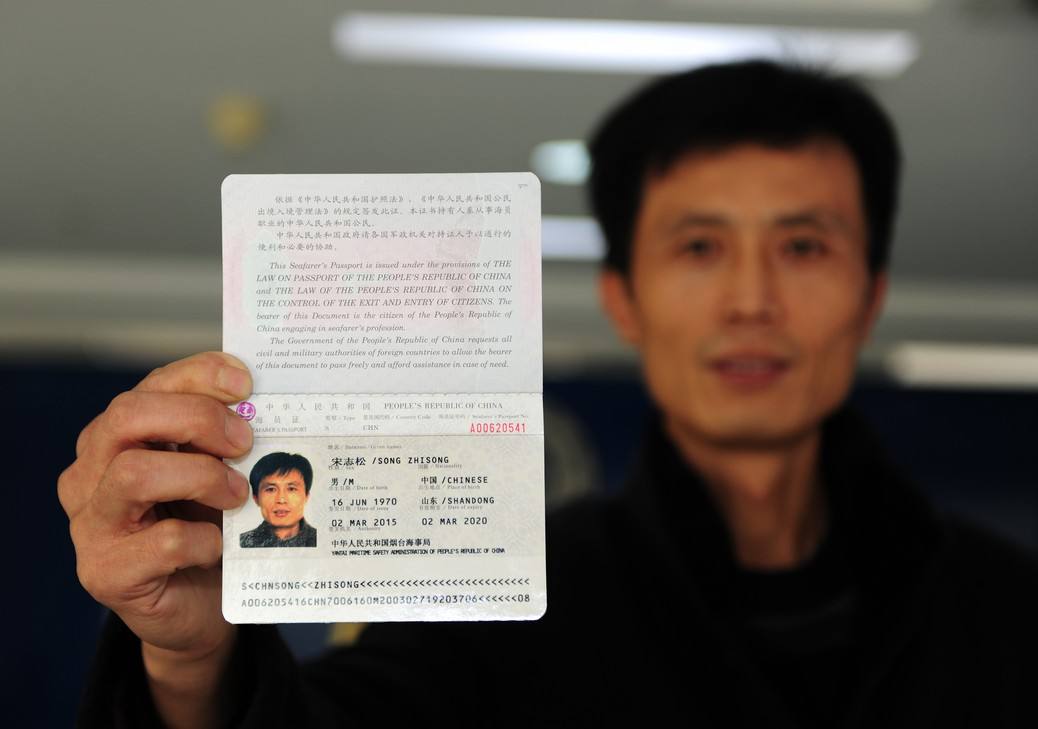 依据《中华人民共和国护照法》、《中华人民共和国公民
出境入境管理法》的规定签发此证。本证书持有人系从事海员
职业的中华人民共和国公民。
中华人民共和国政府请各国军政机关对持证人予以通行的
便利和必要的协助。
This Seafarer's Passport is issued under the provisions of THE
LAW ON PASSPORT OF THE PEOPLE'S REPUBLIC OF CHINA
and THE LAW OF THE PEOPLE'S REPUBLIC OF CHINA ON
THE CONTROL OF THE EXIT AND ENTRY OF CITIZENS. The
bearer of this Document is the citizen of the People's Republic of
China engaging in seafarer's profession.
The Government of the People's Republic of China requests all
civil and military authorities of foreign countries to allow the bearer
of this document to pass freely and afford assistance in case of need.
中华人民共和国 PEOPLE'S REPUBLIC OF CHINA
海员证 / Type / Country Code / Seafarer's Passport No.
PASSPORT CHN A00620541
宋志松 /SONG ZHISONG
/ Nationality
男 /M 中国 /CHINESE
出生日期 / Date of birth 出生地点 / Place of birth
16 JUN 1970 山东 /SHANDONG
签发日期 / Date of issue / Date of expiry
02 MAR 2015 02 MAR 2020
Authority
中华人民共和国烟台海事局
YANTAI MARITIME SAFETY ADMINISTRATION OF PEOPLE'S REPUBLIC OF CHINA
S<CHNSONG<<ZHISONG<<<<<<<<<<<<<<<<<<<<<<<<<<
A006205416CHN7006160M200302719203706<<<<<<08